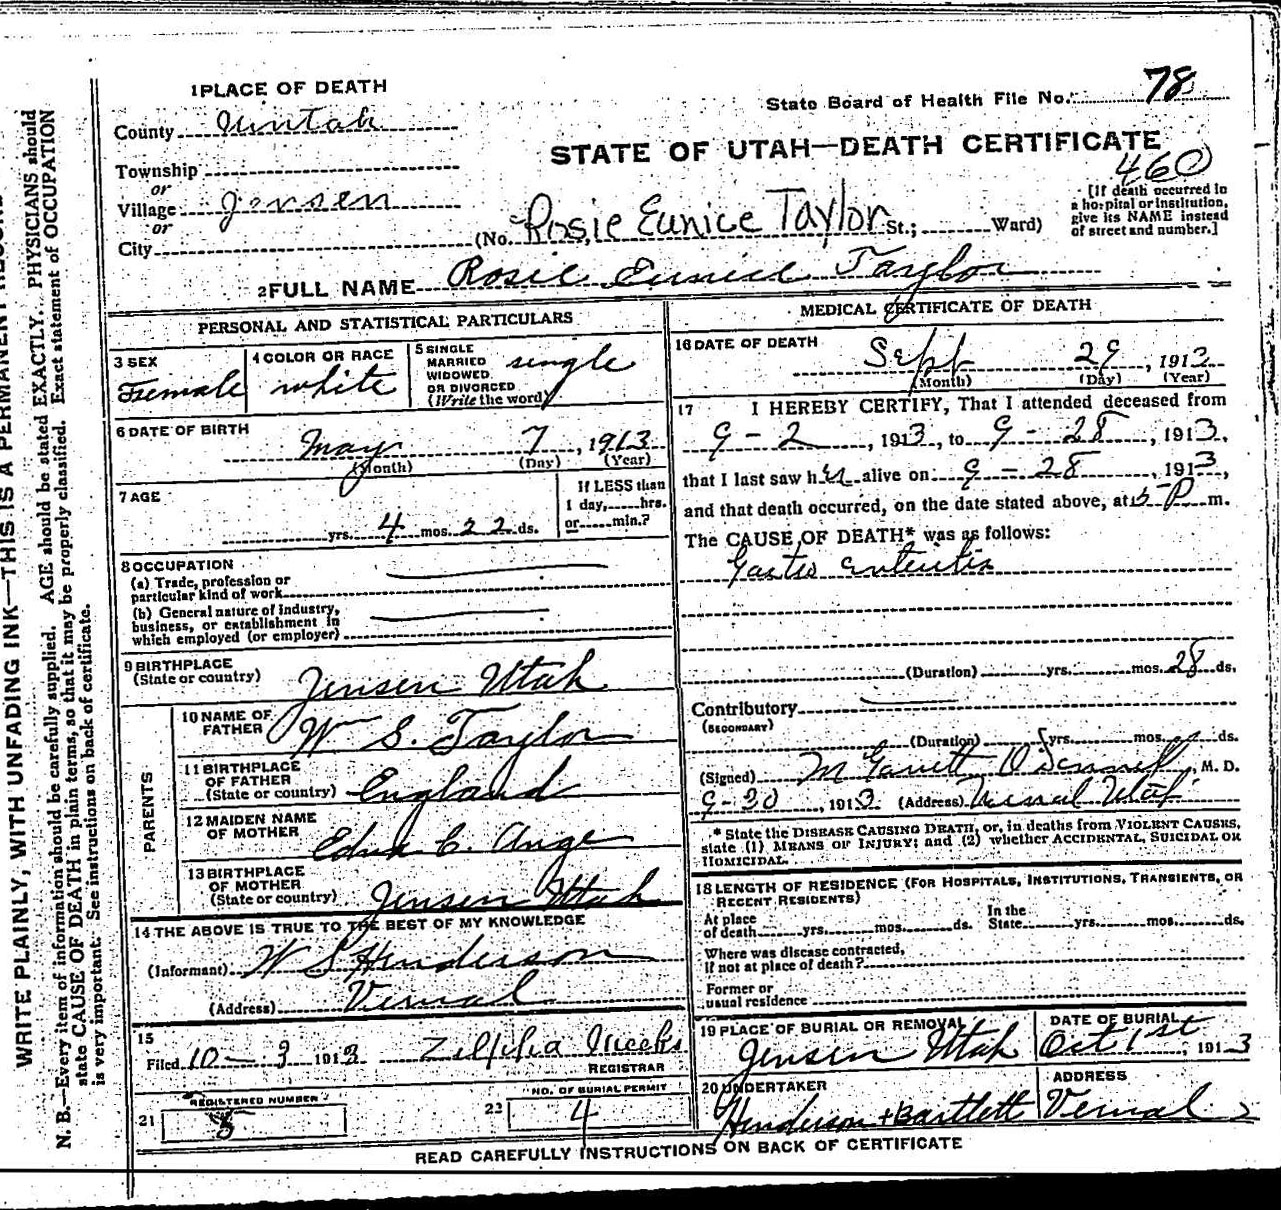 WRITE PLAINLY, WITH UNFADING INK—THIS IS A PERMANENT
N. B.—Every item of information should be carefully supplied. AGE should be stated EXACTLY. PHYSICIANS should
state CAUSE OF DEATH in plain terms, so that it may be properly classified. Exact statement of OCCUPATION
is very important. See instructions on back of certificate.
1 PLACE OF DEATH
County Uintah
Township
or
Village Jensen
or
City
State Board of Health File No. 78
STATE OF UTAH—DEATH CERTIFICATE
460
(No. Rosie Eunice Taylor St.; Ward)
[If death occurred in
a hospital or institution,
give its NAME instead
of street and number.]
2 FULL NAME Rosie Eunice Taylor
PERSONAL AND STATISTICAL PARTICULARS
3 SEX
Female
4 COLOR OR RACE
white
5 SINGLE
MARRIED
WIDOWED
OR DIVORCED
(Write the word)
single
6 DATE OF BIRTH
May 7, 1913
(Month) (Day) (Year)
7 AGE
yrs. 4 mos. 22 ds.
If LESS than
1 day, hrs.
or min.?
8 OCCUPATION
(a) Trade, profession or
particular kind of work
(b) General nature of industry,
business, or establishment in
which employed (or employer)
9 BIRTHPLACE
(State or country)
Jensen Utah
PARENTS
10 NAME OF
FATHER
Wm S. Taylor
11 BIRTHPLACE
OF FATHER
(State or country)
England
12 MAIDEN NAME
OF MOTHER
Edna C. Ange
13 BIRTHPLACE
OF MOTHER
(State or country)
Jensen Utah
14 THE ABOVE IS TRUE TO THE BEST OF MY KNOWLEDGE
(Informant) W S Henderson
(Address) Vernal
15
Filed 10 - 3 1913 Zelphia Meeks
REGISTRAR
21
REGISTERED NUMBER
5
22
NO. OF BURIAL PERMIT
4
MEDICAL CERTIFICATE OF DEATH
16 DATE OF DEATH
Sept 29, 1913
(Month) (Day) (Year)
17 I HEREBY CERTIFY, That I attended deceased from
9 - 2, 1913, to 9 - 28, 1913,
that I last saw her alive on 9 - 28, 1913,
and that death occurred, on the date stated above, at 5 P m.
The CAUSE OF DEATH* was as follows:
Gastro enteritis
(Duration) yrs. mos. 28 ds.
Contributory
(SECONDARY)
(Duration) yrs. mos. ds.
(Signed) M Garrett O'Donnell, M. D.
9-30, 1913 (Address) Vernal Utah
* State the DISEASE CAUSING DEATH, or, in deaths from VIOLENT CAUSES,
state (1) MEANS OF INJURY; and (2) whether ACCIDENTAL, SUICIDAL OR
HOMICIDAL.
18 LENGTH OF RESIDENCE (FOR HOSPITALS, INSTITUTIONS, TRANSIENTS, OR
RECENT RESIDENTS)
At place
of death yrs. mos. ds.
In the
State yrs. mos. ds.
Where was disease contracted,
if not at place of death?
Former or
usual residence
19 PLACE OF BURIAL OR REMOVAL
Jensen Utah
DATE OF BURIAL
Oct 1st, 1913
20 UNDERTAKER
Henderson + Bartlett
ADDRESS
Vernal
2
READ CAREFULLY INSTRUCTIONS ON BACK OF CERTIFICATE